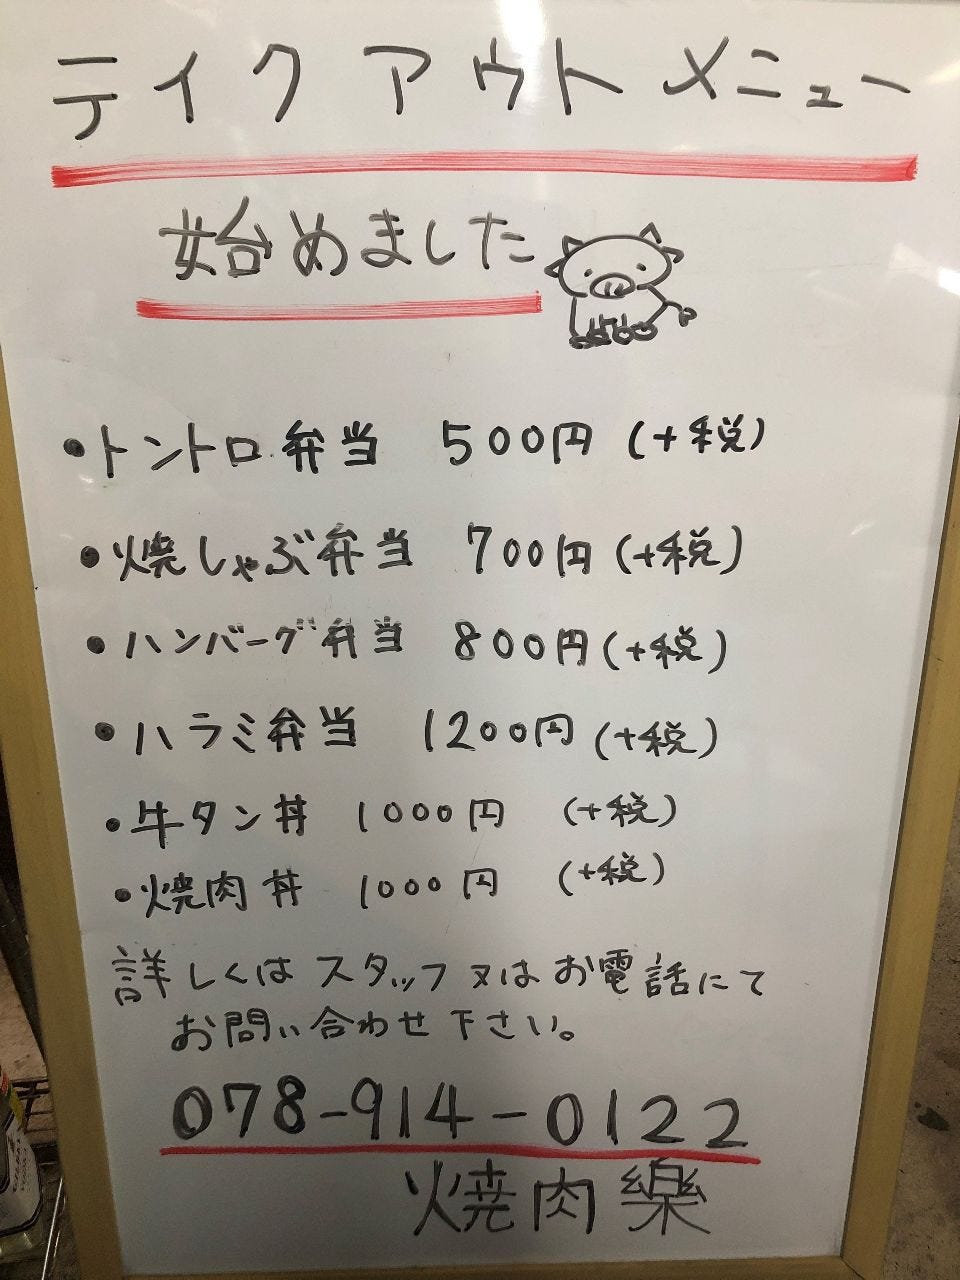 テイクアウトメニュー
始めました
・トントロ弁当 500円 (+税)
・焼しゃぶ弁当 700円 (+税)
・ハンバーグ弁当 800円 (+税)
・ハラミ弁当 1200円 (+税)
・牛タン丼 1000円 (+税)
・焼肉丼 1000円 (+税)
詳しくはスタッフ又はお電話にて
お問い合わせ下さい。
078-914-0122
焼肉樂